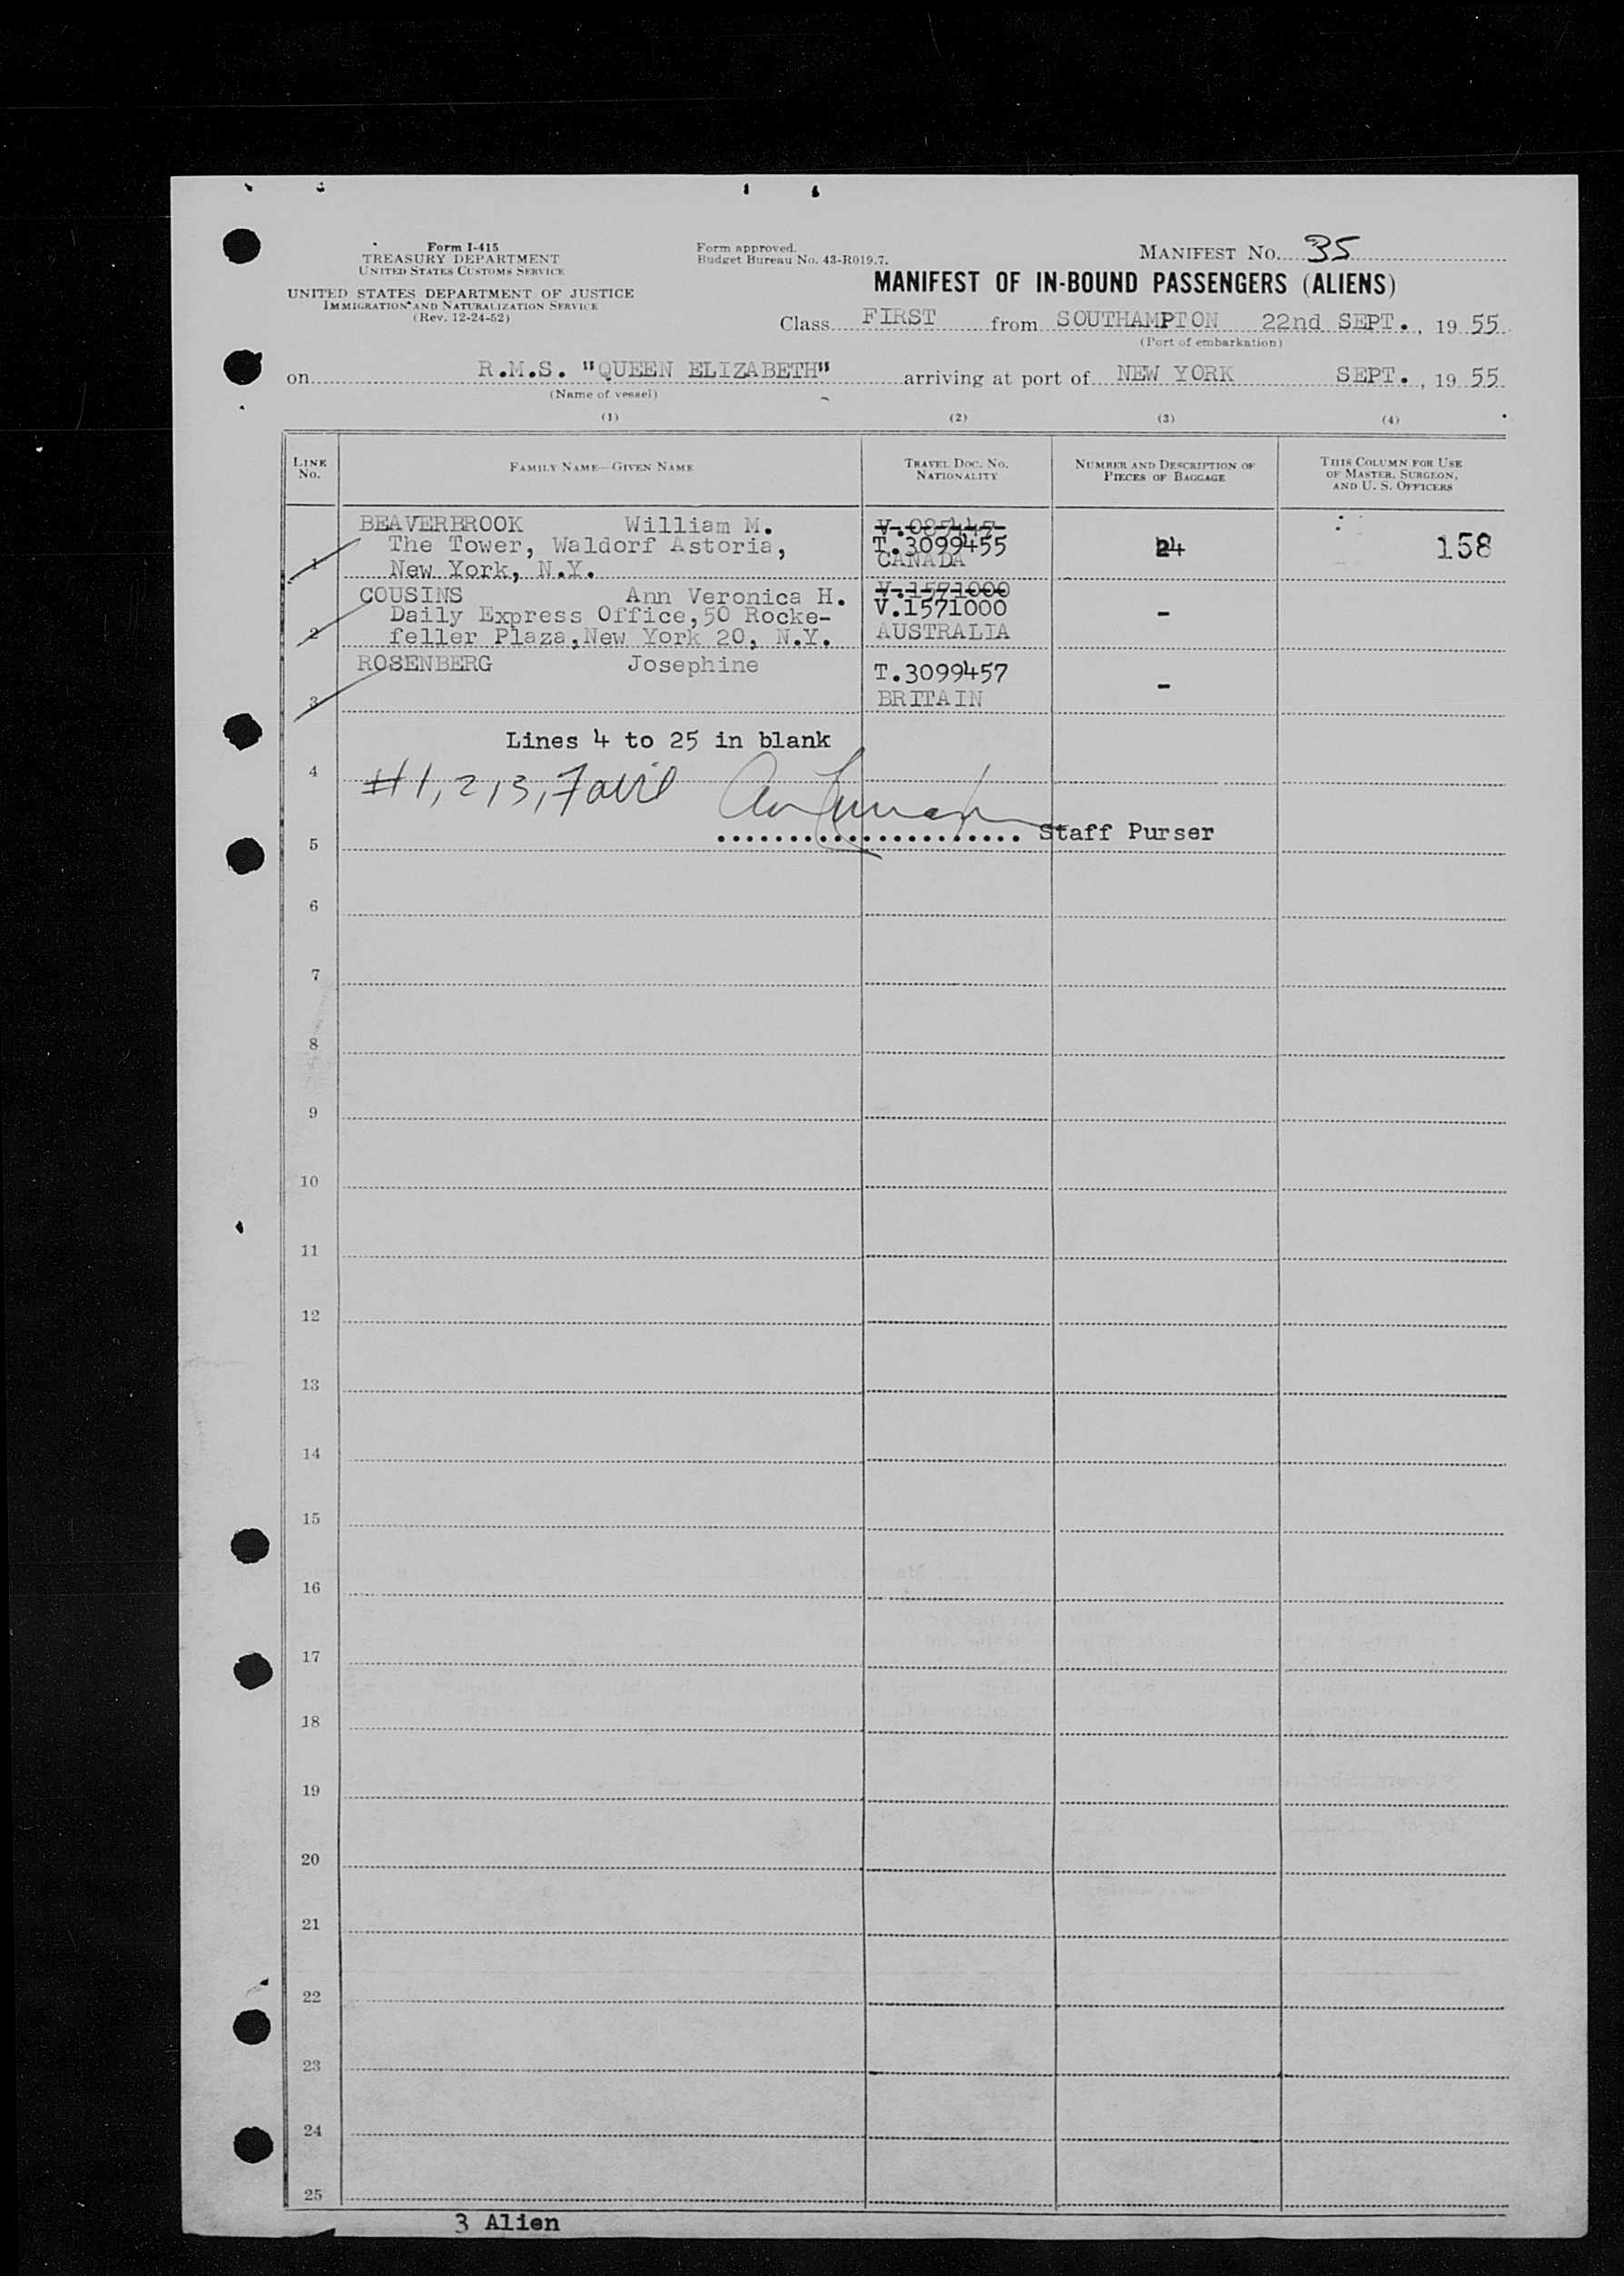 Form I-415
TREASURY DEPARTMENT
UNITED STATES CUSTOMS SERVICE
UNITED STATES DEPARTMENT OF JUSTICE
IMMIGRATION AND NATURALIZATION SERVICE
(Rev. 12-24-52)
Form approved.
Budget Bureau No. 43-R019.7.
MANIFEST NO. 35
MANIFEST OF IN-BOUND PASSENGERS (ALIENS)
Class FIRST from SOUTHAMPTON 22nd SEPT., 19 55
(Port of embarkation)
on R.M.S. "QUEEN ELIZABETH" arriving at port of NEW YORK SEPT., 19 55
(Name of vessel)
(1) (2) (3) (4)
LINE NO.
FAMILY NAME—GIVEN NAME
TRAVEL DOC. NO. NATIONALITY
NUMBER AND DESCRIPTION OF PIECES OF BAGGAGE
THIS COLUMN FOR USE OF MASTER, SURGEON, AND U. S. OFFICERS
1 BEAVERBROOK William M.
The Tower, Waldorf Astoria, T.3099455 24 158
New York, N.Y. CANADA
2 COUSINS Ann Veronica H. V.1571000
Daily Express Office,50 Rocke- V.1571000 -
feller Plaza,New York 20, N.Y. AUSTRALIA
3 ROSENBERG Josephine T.3099457 -
BRITAIN
Lines 4 to 25 in blank
4 #1,2,3,
5 .................... Staff Purser
6
7
8
9
10
11
12
13
14
15
16
17
18
19
20
21
22
23
24
25
3 Alien